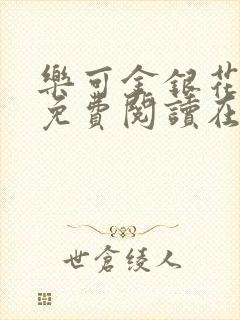 樂可金銀花
免費閱讀在
世倉綾人